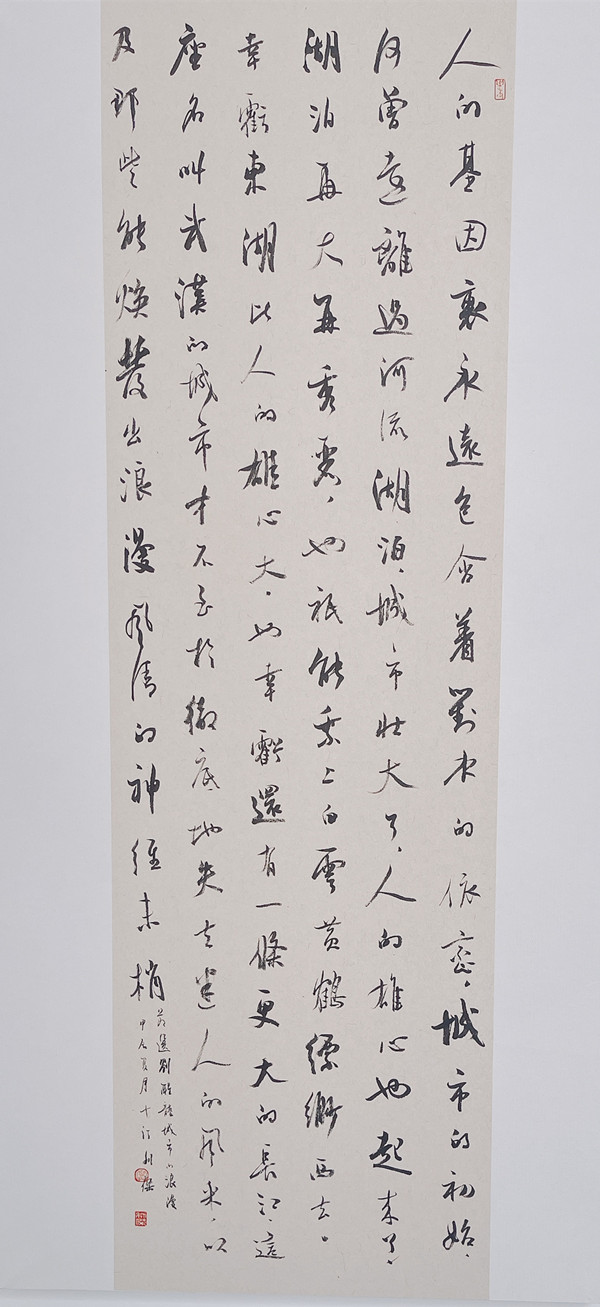 人的基因裏永遠包含着對水的依戀，城市的初始，
何曾遠離過河流湖泊，城市壯大了，人的雄心也起來了，
湖泊再大再秀麗，也祇能乘上白雲黃鶴縹緲西去。
幸虧東湖比人的雄心大，也幸虧還有一條更大的長江，這
座名叫武漢的城市才不至於徹底地失去迷人的風采，以
及那些能煥發出浪漫風情的神經末梢
劉醒龍城市的浪漫
甲辰夏月